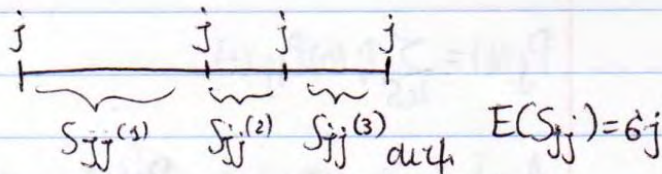 j j j j
S_jj^(1) S_jj^(2) S_jj^(3) E(S_jj)=6j